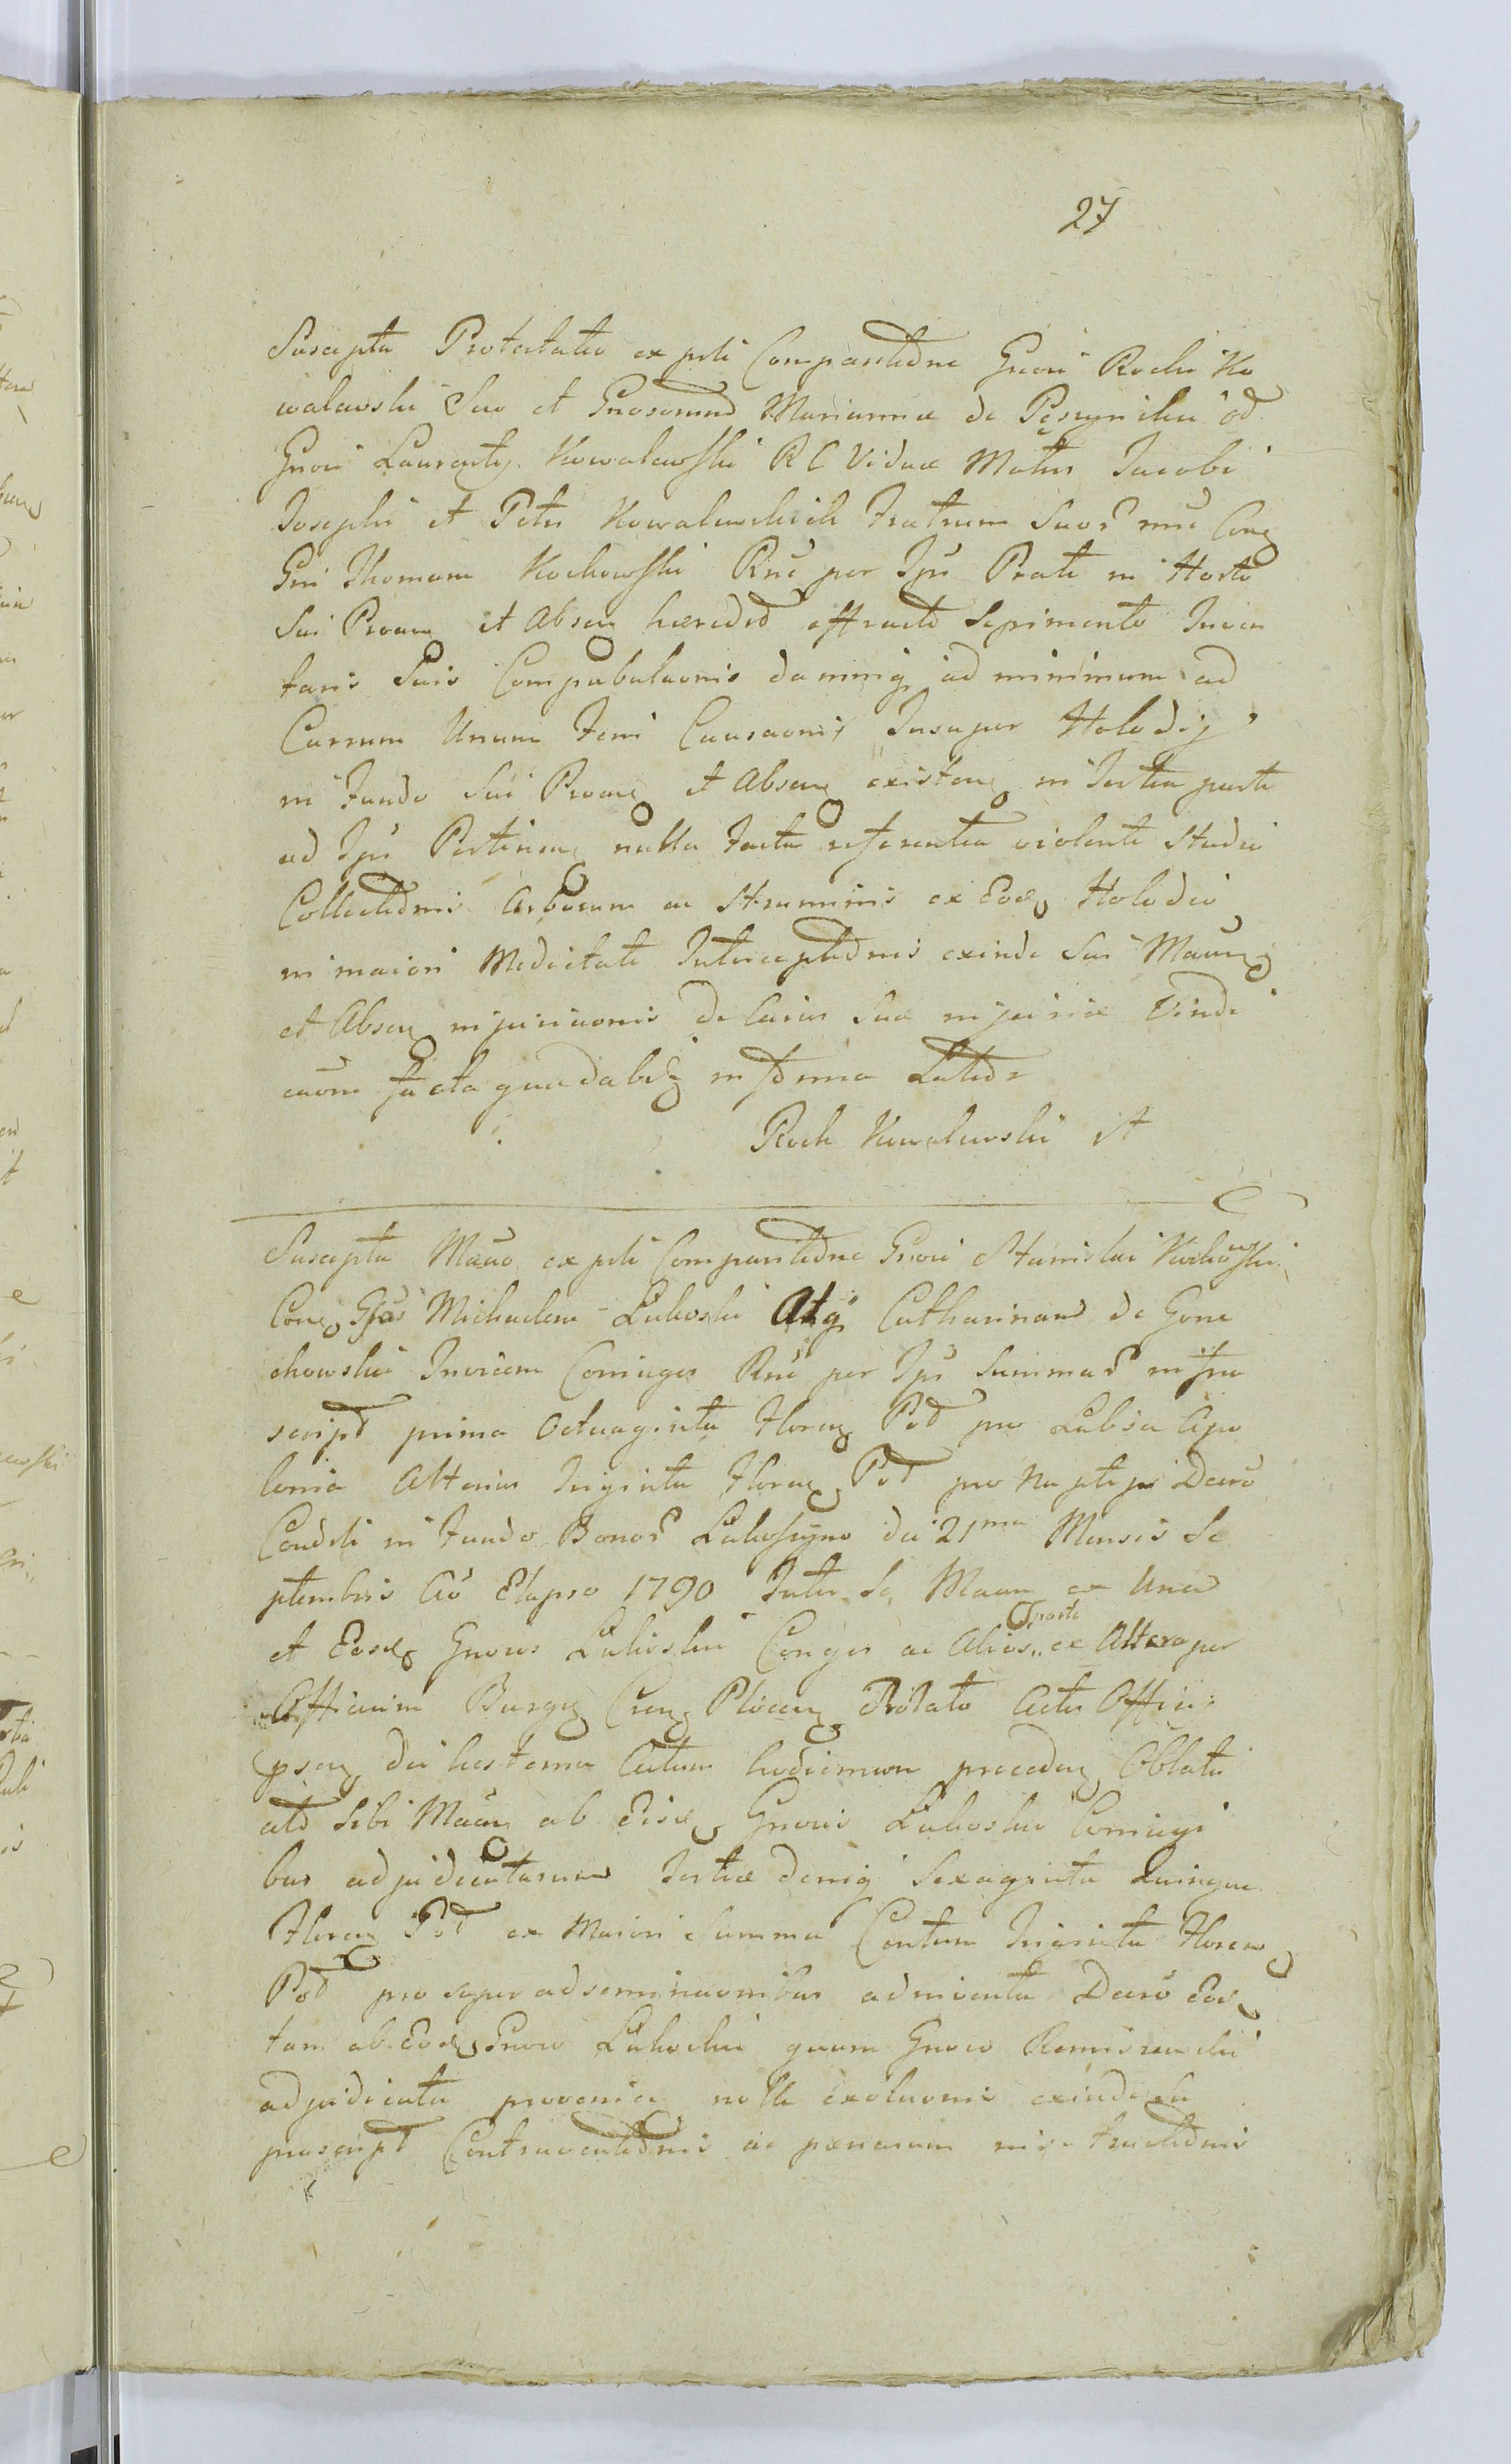 27
Suscepta Protestatio ex psli Comparitiõne Gnosi Rochi Ko
walewski Suo et Gnosorum Mariannæ de Pęszynskie õd
Gnosi Laurenty Kowalewski R C Viduæ Matris Jacobi
Josephi et Petri Kowalewskich Fratrum Suor nne Con
Gm Thomam Kochowski Rne per Ips Prati in Horto
Sui Proan et Absen hæredũ effracto Sepimento Inven
taris Suis Compabulaonis damniq ad minimum ad
Currum Unum Feni Causaonis Insuper Holodij
in Fundo Sui Proan et Absen existen in Tertia parte
ad Ips Pertinen nulla facta referentia violenti Studii
Collectiõnis Arborum ac Struminis ex Eod Holodio
in maiori Medietate Interceptiõnis exinde Sui Maan
et Absen injuriaonis De Cuius Suæ injuriæ Vindi
caõne facta quadalib in forma Latiõr
Roch Kowalewski A
Suscepta Maõo ex psli Comparitiõne Gnosi Stanislai Kochowski
Con Gsos Michaelem Lukoski Atq Catharinam de Gone
chowskie Invicem Coniuges Rne per Ips Summar infra
script prima Octuaginta Floren Pol pro Lubsa Apo
lonia Alterius Triginta Floren Pol pro Decro
Condesli in Fundo Bonor Lukoszyno die 21ma Mensis Se
ptembris Aõ Elapso 1790 Inter Se Maan ex Una
et Eosd Gnosos Lukoskie Conges ac Alios parte ex Altera per
Officium Burgen Cren Plocen Prolato Actis Officii
psen die hesterna Actum hodiernum preceden Oblati
atõ Sibi Maan ab Eisd Gnosis Lukoskie Coniugi
bus adjudicatarum Tertiæ deniq Sexaginta Quinque
Floren Pol ex Maiori Summa Centum Triginta Floren
Pol pro super adseminaonibus adinventa Decro Eod
tam ab Eod Gnoso Lukoskie quam Gnoso
adjudicata provenien nolle exoluonis exinde
prascript Contraventiõnis ac pænarum